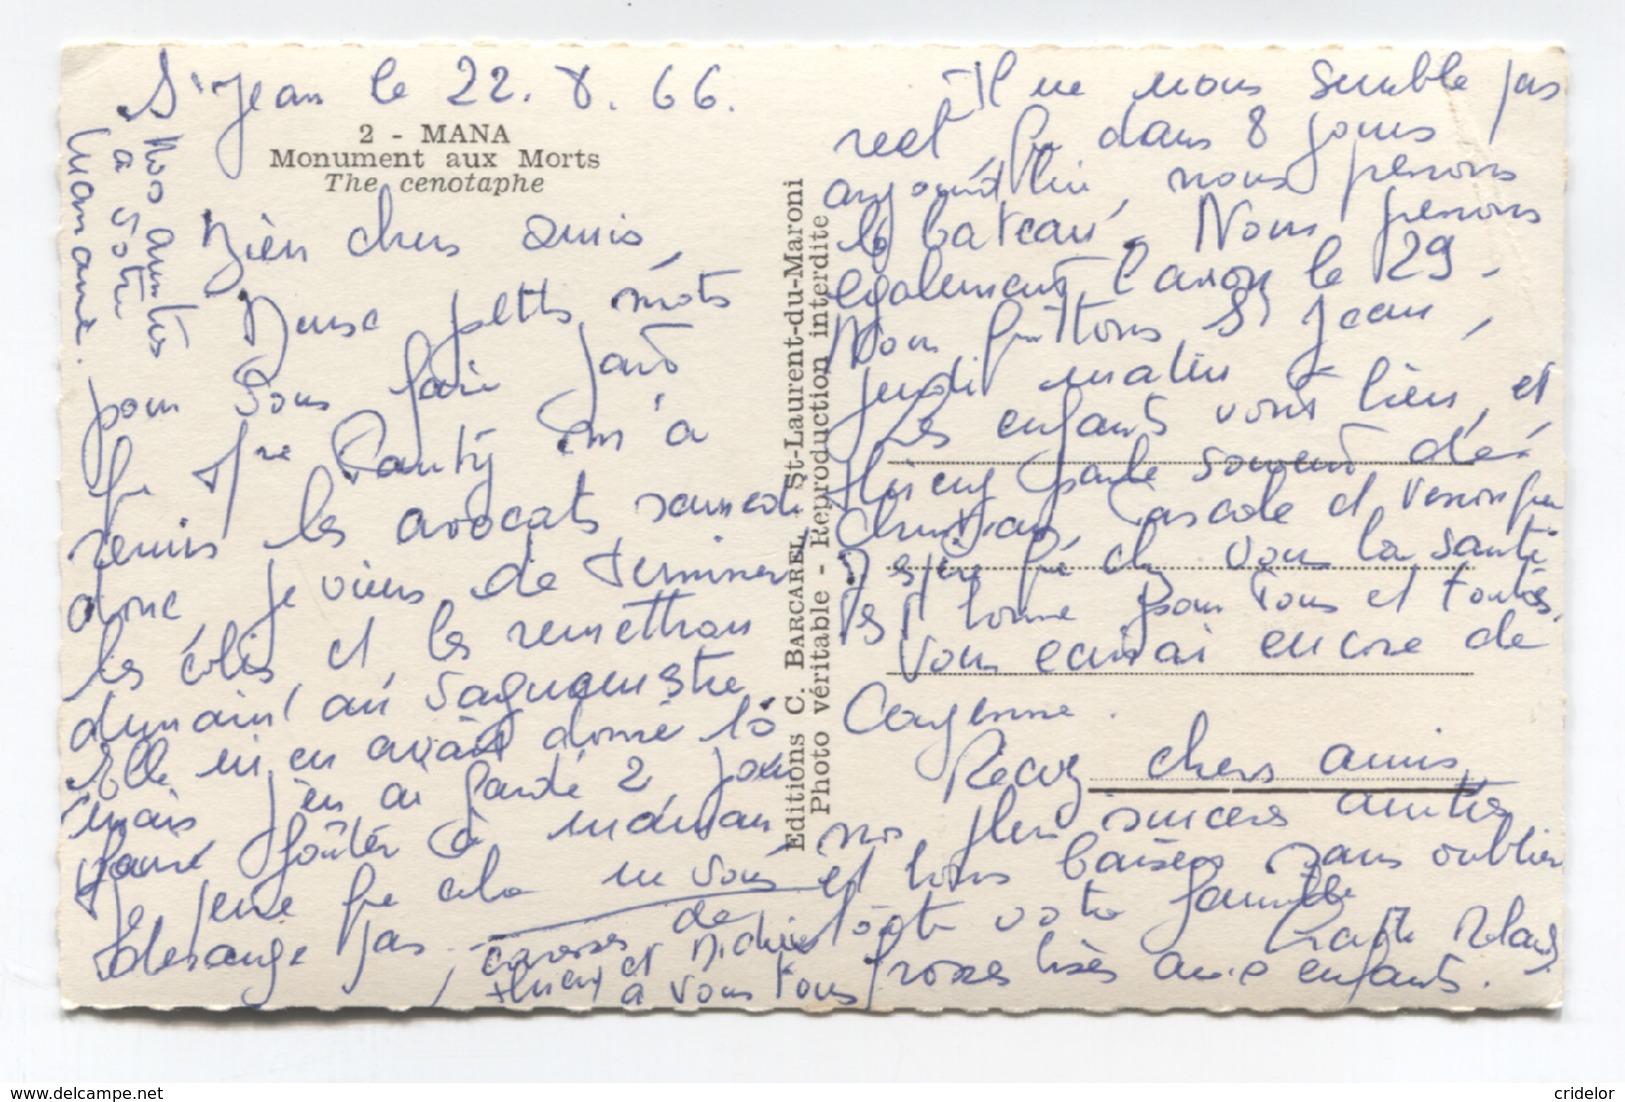 St Jean le 22.8.66.
2 - MANA
Monument aux Morts
The cenotaphe
Bien chers amis,
Deux petits mots
pour vous faire part
que Mme Panty m'a
remis les avocats samedi
donc, je viens de terminer
les colis, et les remettrai
demain au vaguemestre
Elle m'en avait donné 10
mais j'en ai gardé 2 pour
faire goûter à maman
Je pense que cela ne vous
dérange pas.
caresses de
Thierry et Didier
à vous tous
Nos amitiés
à votre
Maman.
Editions C. BARCAREL, St-Laurent-du-Maroni
Photo véritable - Reproduction interdite
Il ne nous semble pas
réel que dans 8 jours
aujourd'hui, nous prenons
le bateau. Nous prenons
également l'avion le 29.
Nous quittons St Jean,
jeudi matin
Les enfants vont bien, et
Thierry parle souvent de
Christian, Pascale et Véronique
J'espère que chez vous la santé
est bonne pour tous et toutes.
Vous écrirai encore de
Cayenne.
Recevez chers amis,
nos plus sincères amitiés
et bons baisers sans oublier
toute votre famille
Grosses bises aux enfants.
www.delcampe.net
cridelor